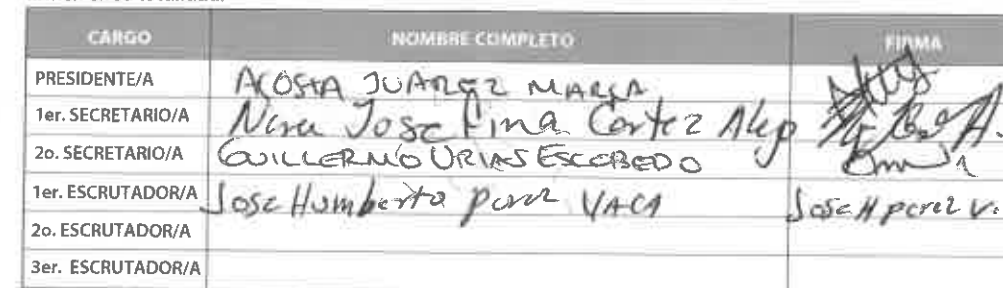 CARGO NOMBRE COMPLETO FIRMA
PRESIDENTE/A ACOSTA JUAREZ MARIA
1er. SECRETARIO/A Nora Josefina Cortez Alep
2o. SECRETARIO/A GUILLERMO URIAS ESCOBEDO
1er. ESCRUTADOR/A Jose Humberto Perez VACA Jose H perez V.
2o. ESCRUTADOR/A
3er. ESCRUTADOR/A